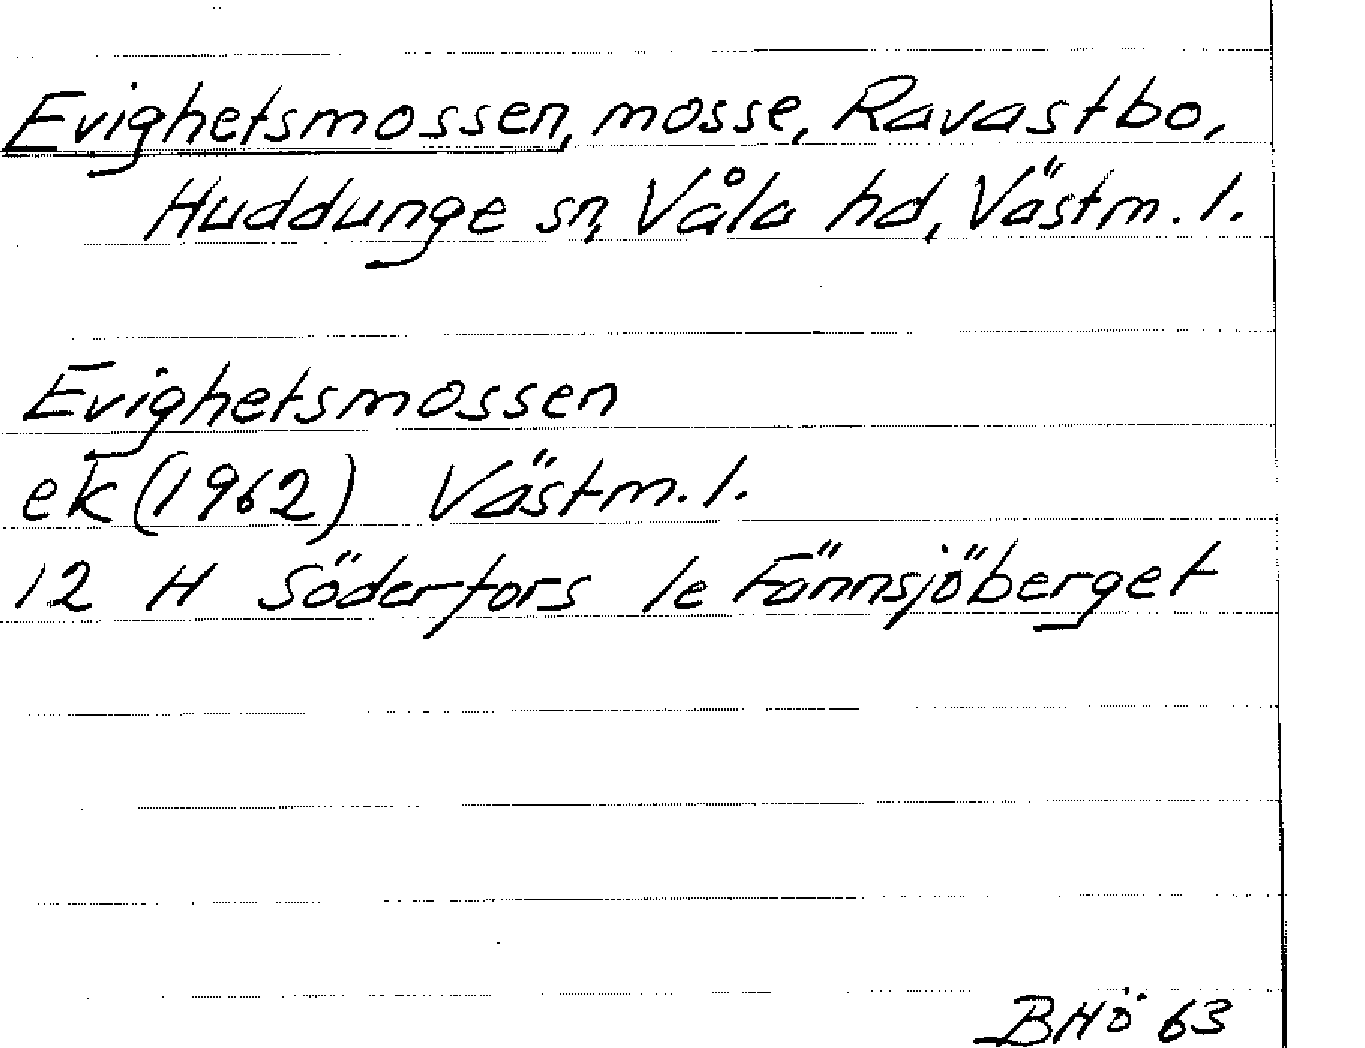 Evighetsmossen, mosse, Ravastbo,
Huddunge sn, Våla hd, Västm. l.
Evighetsmossen
ek (1962) Västm. l.
12 H Söderfors 1e Fännsjöberget
BHö 63